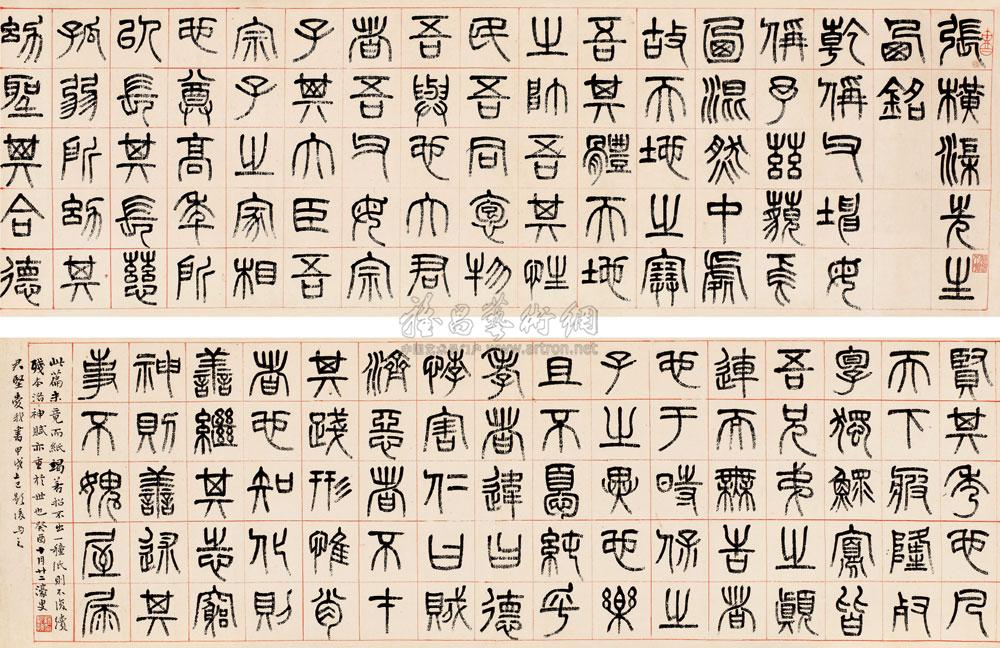 張橫渠先生
西銘
乾稱父坤母
稱予茲藐焉
圖混然中處
故天地之塞
吾其體天地
之帥吾其性
民吾同意物
吾與也大君
者吾父母宗
子其大臣吾
宗子之家相
也尊高年所
以長其長慈
孤弱所幼其
幼聖其合德
賢其秀也凡
天下疲隆殘
惸獨鰥寡皆
吾兄弟之顛
連而無告者
也于時保之
子之翼也樂
且不憂純乎
孝者違曰德
悖害仁曰賊
濟惡者不才
其踐形惟肖
者也知化則
善繼其志窮
神則善述其
事不愧屋漏
此篇未竟而紙竭若紹不出一種紙則不復續
殘本洛神賦亦重於世也癸酉十月廿二濠叟
雅昌藝術網
www.artron.net